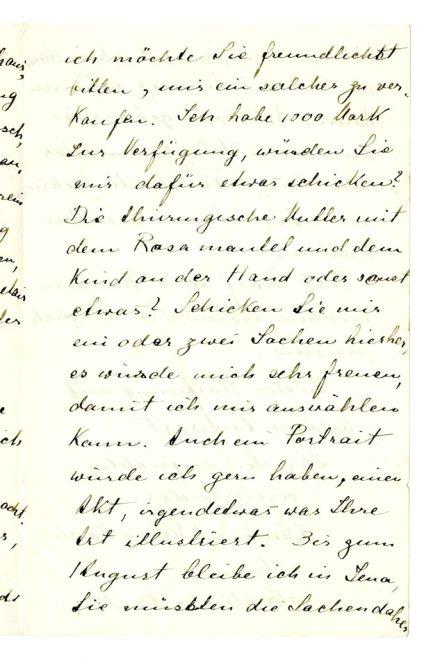 ich möchte Sie freundlichst
bitten, mir ein solches zu ver-
kaufen. Ich habe 1000 Mark
zur Verfügung, würden Sie
mir dafür etwas schicken?
Die thüringische Mutter mit
dem Rosa mantel und dem
Kind an der Hand oder sonst
etwas? Schicken Sie mir
ein oder zwei Sachen hierher,
es würde mich sehr freuen,
damit ich mir auswählen
kann. Auch ein Portrait
würde ich gern haben, einen
Akt, irgendetwas was Ihre
Art illustriert. Bis zum
1 August bleibe ich in Jena,
Sie müssten die Sachen daher